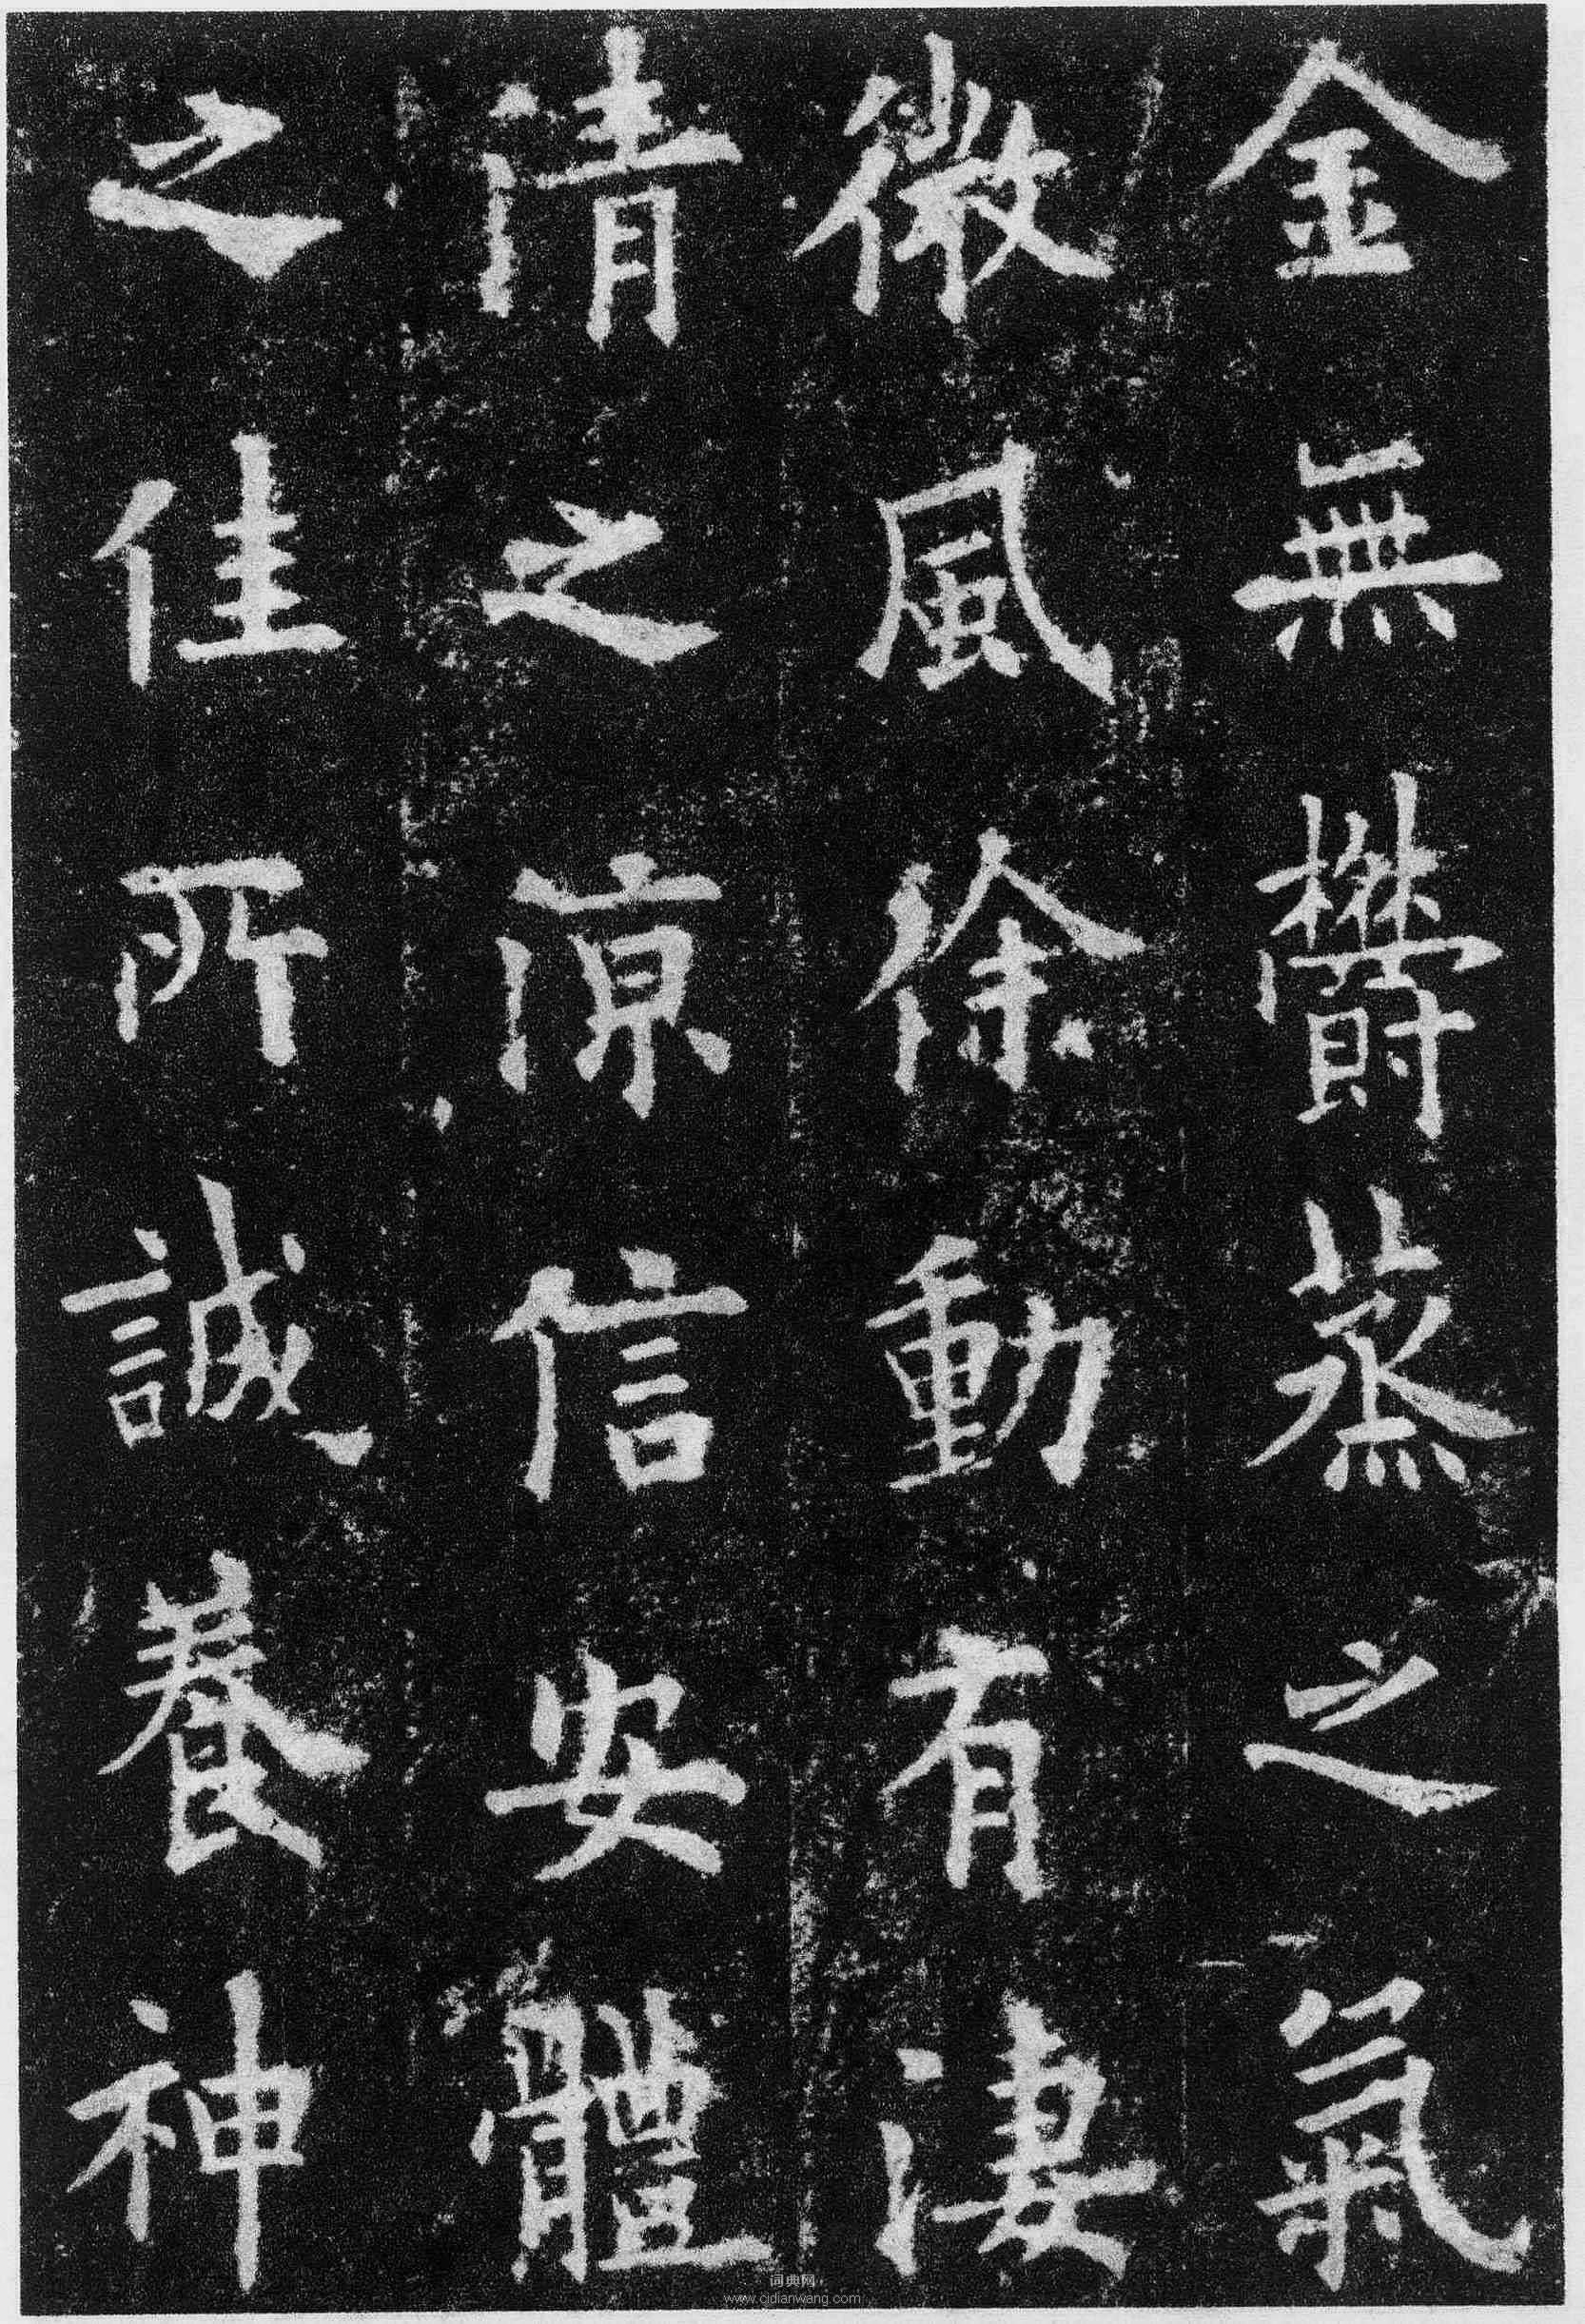 金無欝蒸之氣
微風徐動有淒
清之涼信安體
之佳所誠養神
词典网
www.cidianwang.com